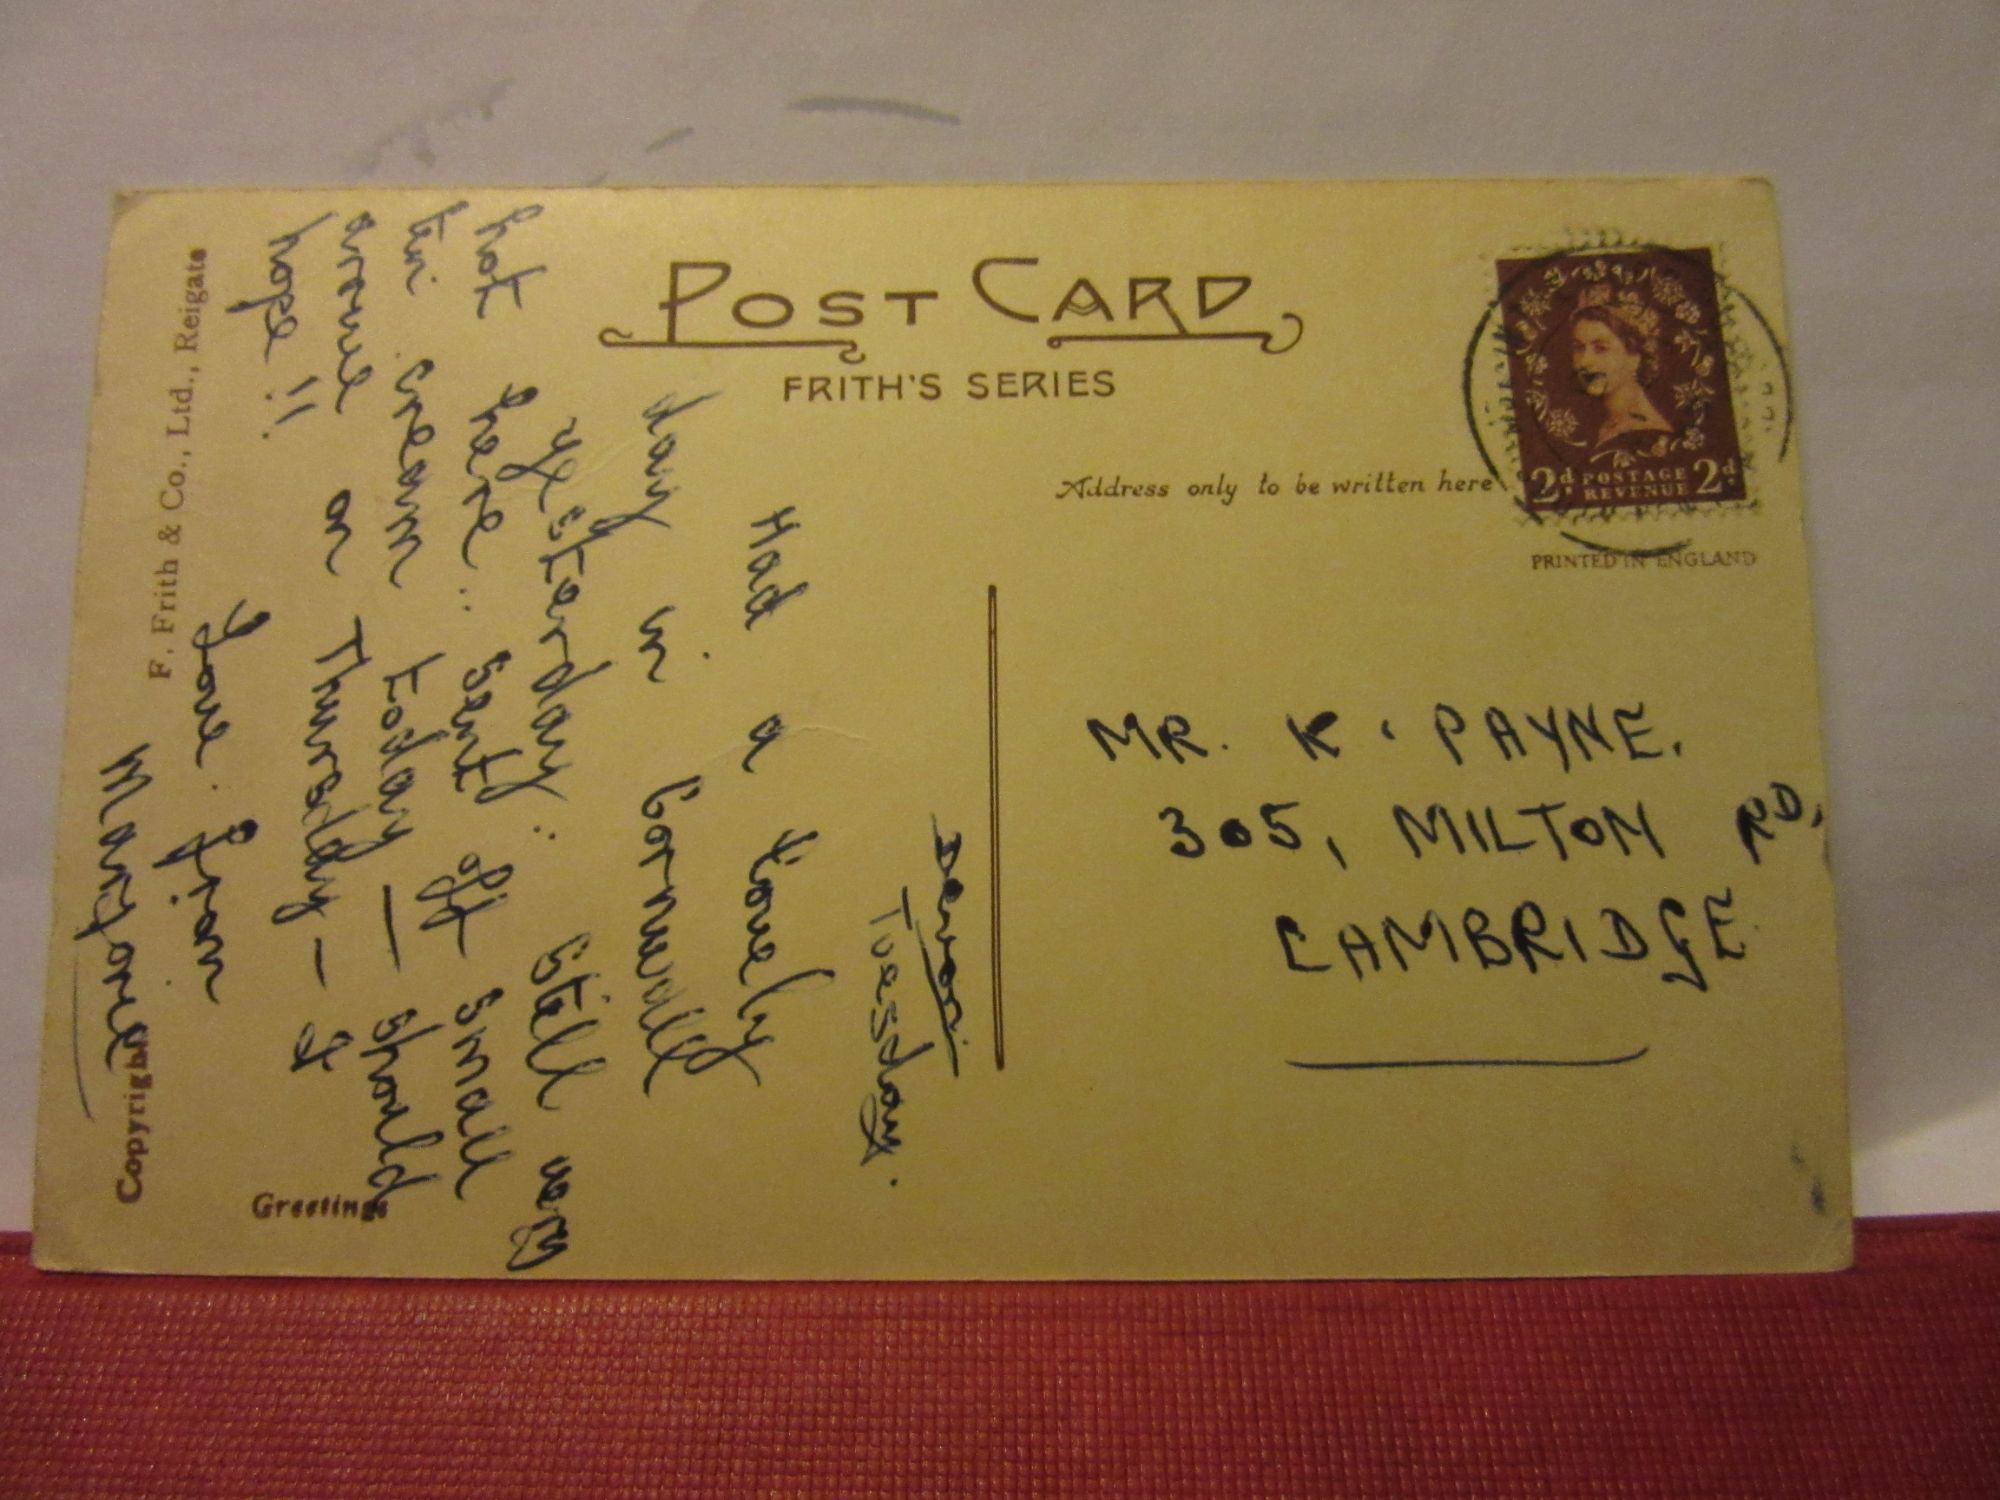 POST CARD
FRITH'S SERIES
Address only to be written here
2d POSTAGE 2d
REVENUE
PRINTED IN ENGLAND
MR. K. PAYNE.
305, MILTON RD,
CAMBRIDGE
Devon
Tuesday.
Had a lovely
day in Cornwall
yesterday: Still very
hot here: Sent off small
tin cream today — should
arrive on Thursday — I
hope!!
Love from
Marjorie
F. Frith & Co., Ltd., Reigate
Copyright
Greetings